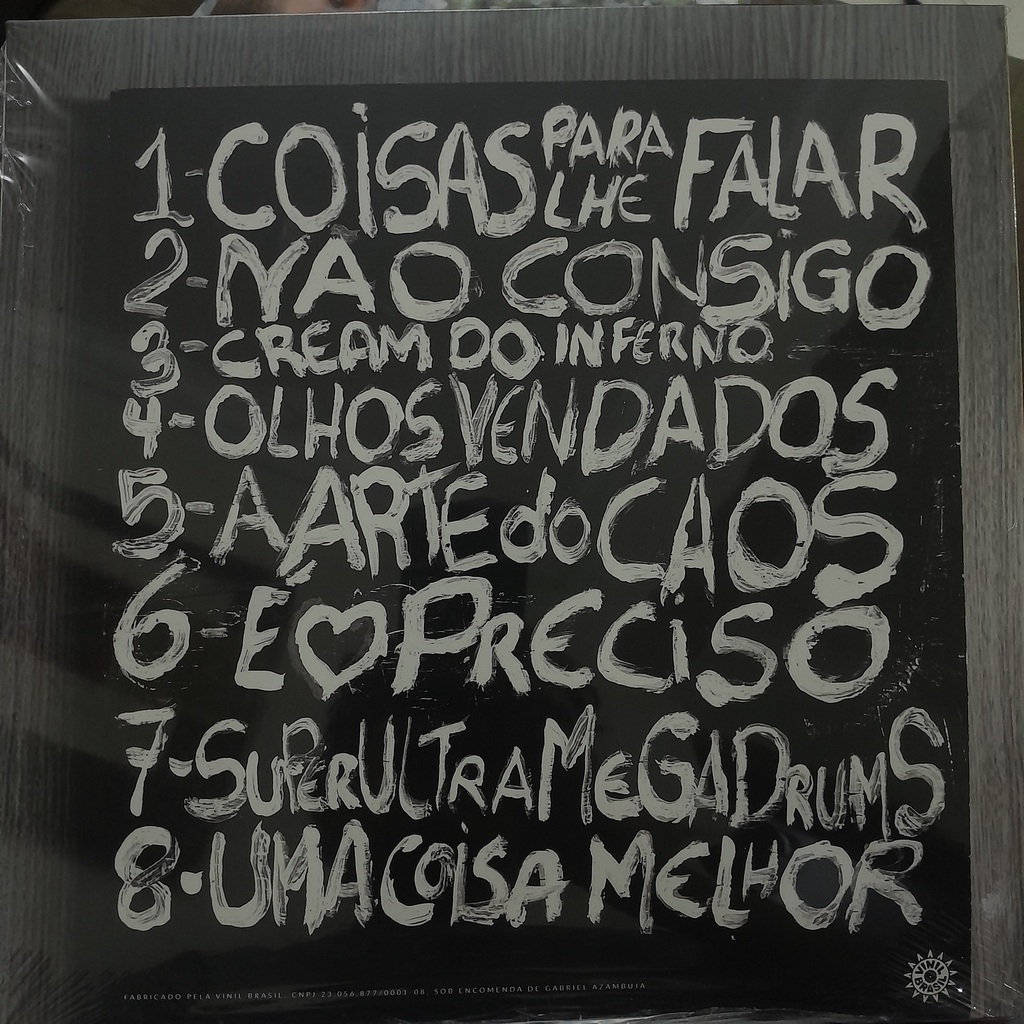 1-COiSAS PARA LHE FALAR
2-NÃO CONSiGO
3-CREAM DO INFERNO
4-OLHOS VENDADOS
5-A ARTE do CAOS
6-É ♡ PRECiSO
7-SUPERULTRAMEGADRUMS
8-UMA COiSA MELHOR
FABRICADO PELA VINIL BRASIL. CNPJ 23.056.877/0001-08, SOB ENCOMENDA DE GABRIEL AZAMBUJA
VINIL BRASIL